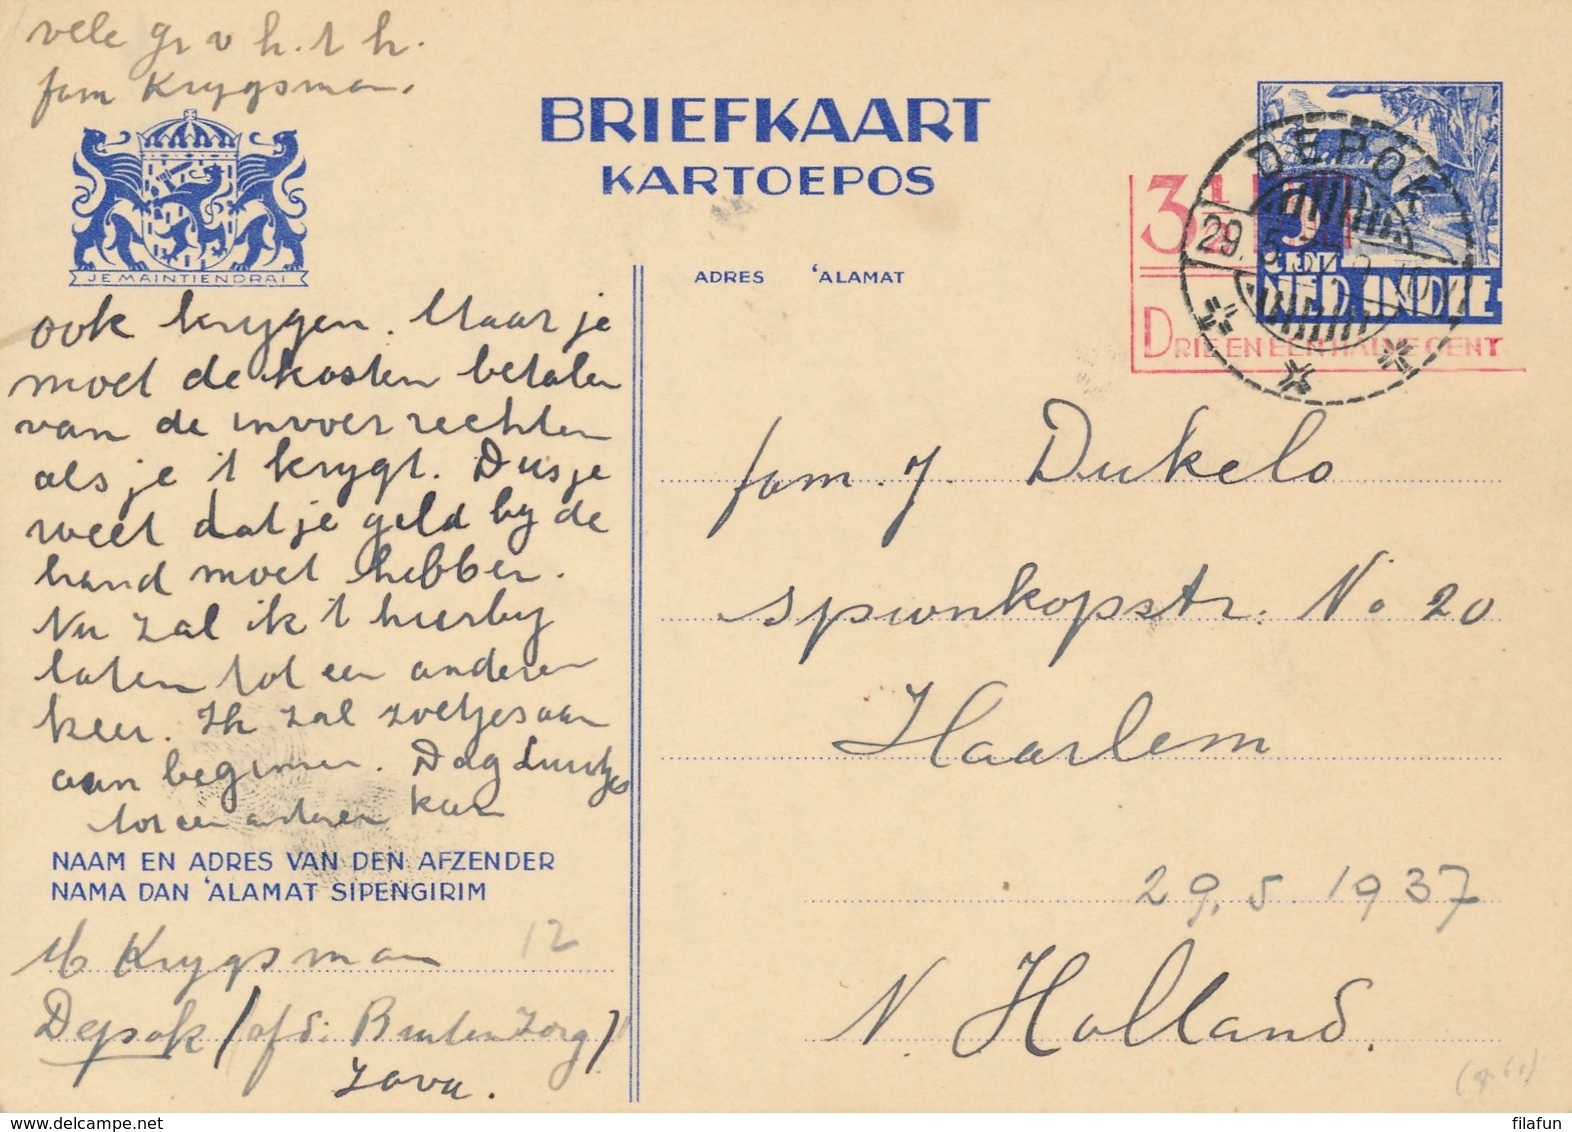 vele gr v h. t h.
fam Krygsman.
BRIEFKAART
KARTOEPOS
JE MAINTIENDRAI
ADRES 'ALAMAT
3½
CENT
NED. INDIE
DRIE EN EEN HALVE CENT
DEPOK
29.5.37
ook krygen. Maar je
moet de kosten betalen
van de invoer rechten
als je 't krygt. Dus je
weet dat je geld by de
hand moet hebben.
Nu zal ik 't hierby
laten tot een anderen
keer. Ik zal zoetjes aan
aan beginnen. Dag Luutjes
tot een anderen keer
NAAM EN ADRES VAN DEN AFZENDER
NAMA DAN 'ALAMAT SIPENGIRIM
Krygsman 12
Depok / afd: Buitenzorg /
Java.
fam. J. Dukelo
Spionkopstr. No 20
Haarlem
29.5.1937
N. Holland.
filafun